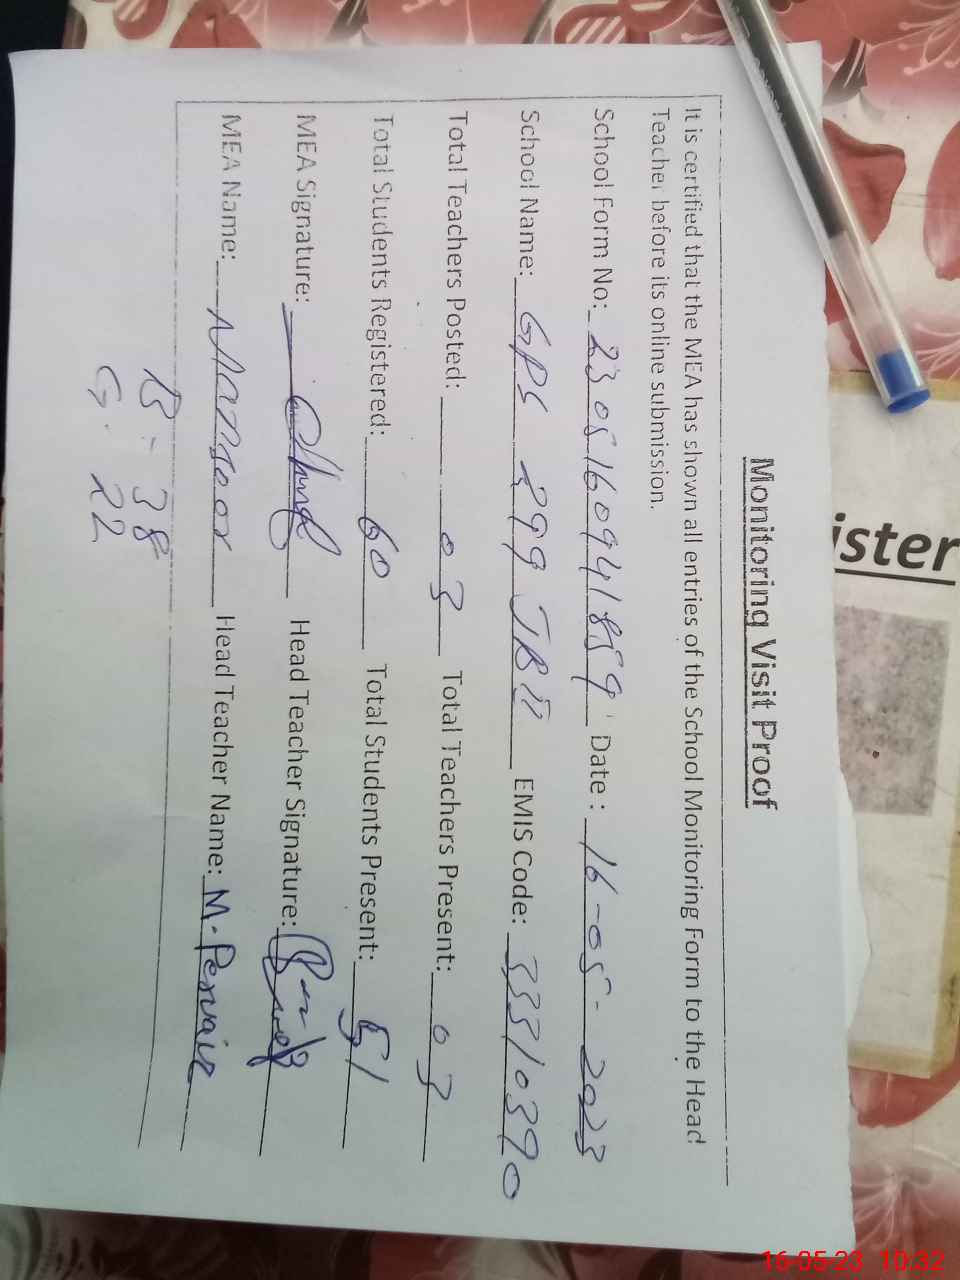 Monitoring Visit Proof
It is certified that the MEA has shown all entries of the School Monitoring Form to the Head
Teacher before its online submission.
School Form No: 2305160941859 Date : 16-05-2023
School Name: GPS 299 JB II EMIS Code: 33310390
Total Teachers Posted: 03 Total Teachers Present: 03
Total Students Registered: 60 Total Students Present: 51
MEA Signature: Head Teacher Signature:
MEA Name: Mansoor Head Teacher Name: M. Pervaiz
B: 38
G: 22
ister
16-05-23 10:32